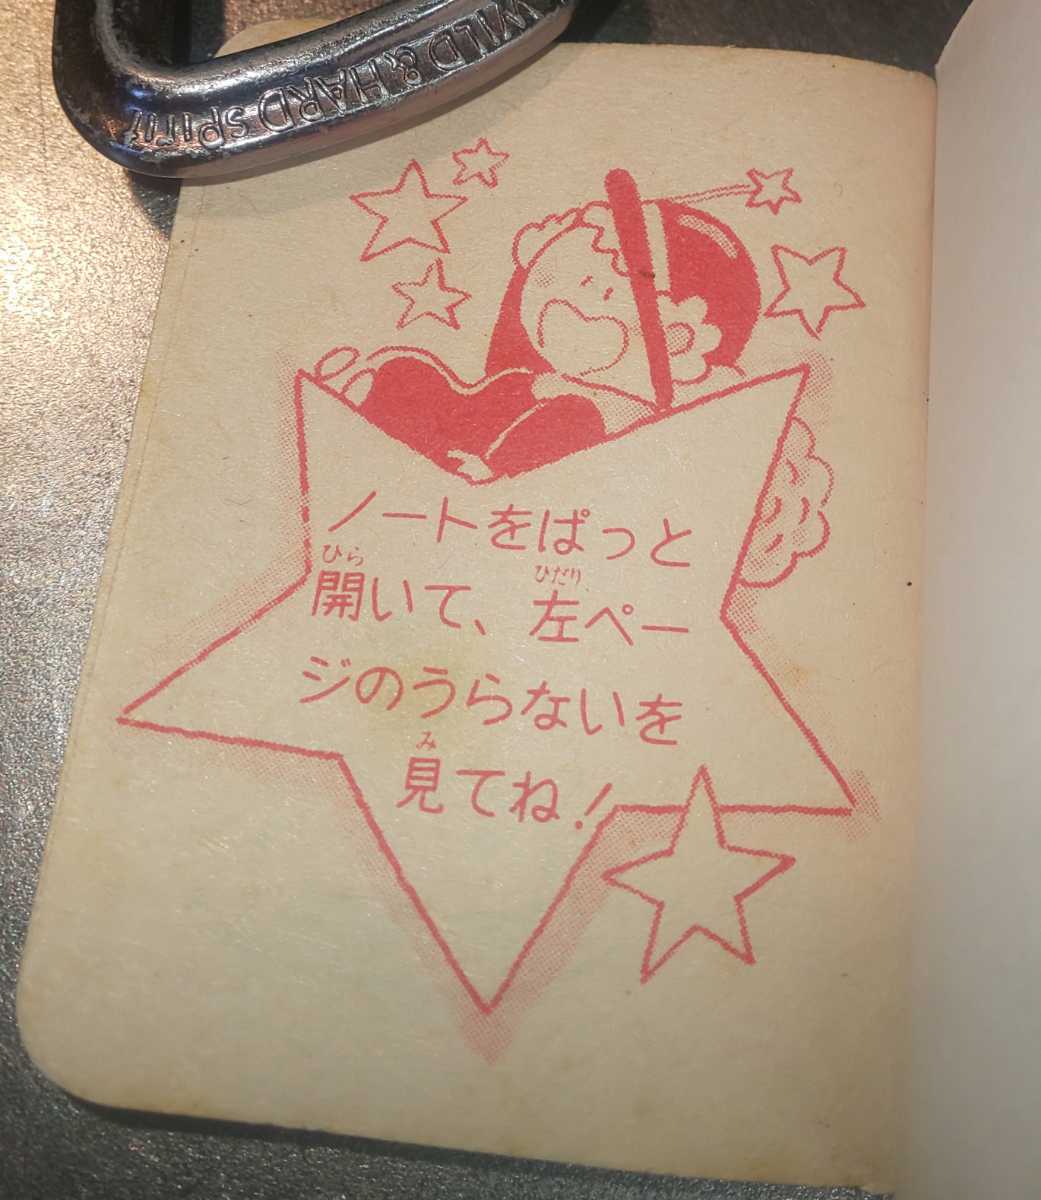 WILD & HARD SPIRIT
ノートをぱっと
ひら
ひだり
開いて、左ペー
ジのうらないを
み
見てね!